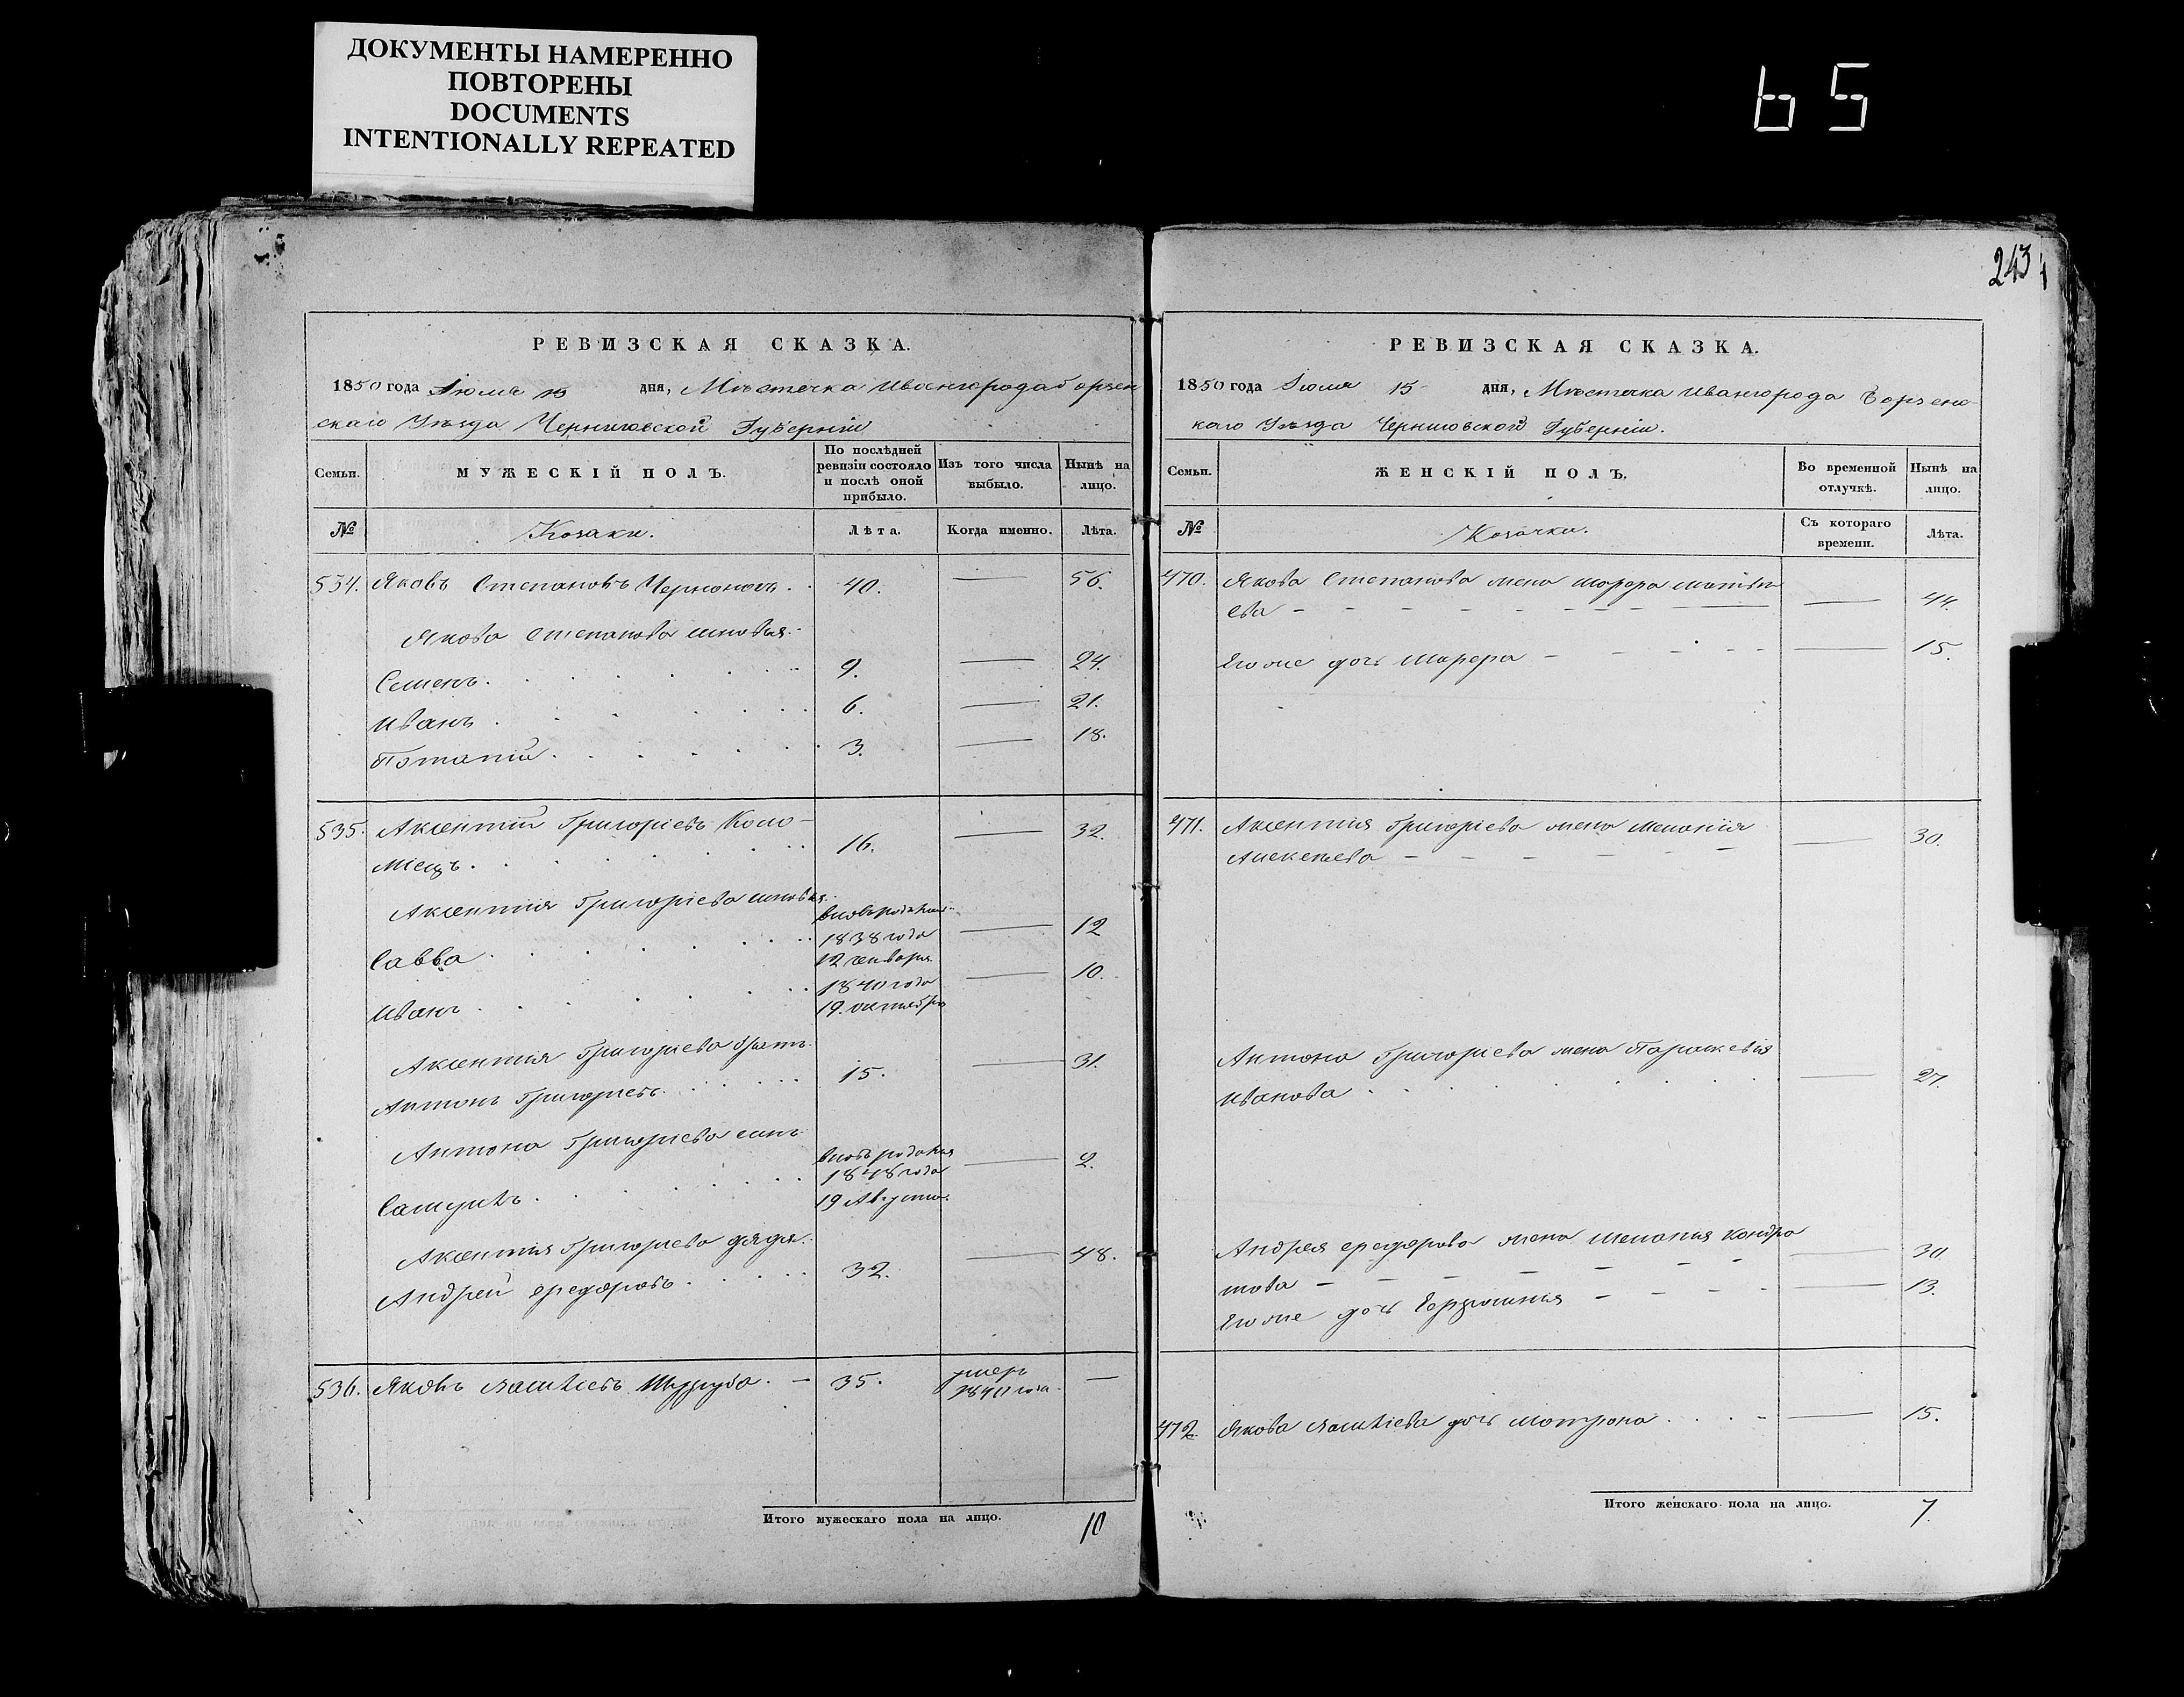 ДОКУМЕНТЫ НАМЕРЕННО
ПОВТОРЕНЫ
DOCUMENTS
INTENTIONALLY REPEATED
65
243
РЕВИЗСКАЯ СКАЗКА.
1850 года Іюля 15 дня, Мѣстечка Ивангорода Борзен
скаго Уѣзда Черниговской Губерніи
Семьи. МУЖЕСКІЙ ПОЛЪ. По послѣдней ревизіи состояло и послѣ оной прибыло. Изъ того числа выбыло. Нынѣ на лицо.
№ Козаки. Лѣта. Когда именно. Лѣта.
534. Яковъ Степановъ 40. — 56.
Якова Степанова сыновья
Семенъ. 9. — 24.
Иванъ. 6. — 21.
Потапій. 3. — 18.
535. Аксентій Григоріевъ Коло-
мíецъ. 16. — 32.
Аксентія Григоріева сыновья.
Савва вновьрожден 1838 года 12 генваря — 12
Иванъ 1840 года 19 октября — 10.
Аксентія Григоріева братъ
Антонъ Григорьевъ. 15. — 31.
Антона Григорьева сынъ
вновь рожден 1848 года 19 Августа — 2.
Аксентія Григорьева дядя
Андрей Федоровъ. 32. — 48.
536. Яковъ — 35. умеръ 1840 года —
Итого мужескаго пола на лицо. 10
РЕВИЗСКАЯ СКАЗКА.
1850 года Іюля 15 дня, Мѣстечка Ивангорода Борзенс
каго Уѣзда Черниговской Губерніи.
Семьи. ЖЕНСКІЙ ПОЛЪ. Во временной отлучкѣ. Нынѣ на лицо.
№ Козачки. Съ котораго времени. Лѣта.
470. Якова Степанова жена Марфа Матвѣ
ева — 44.
Его же дочь Марфа — 15.
471. Аксентія Григоріева жена Меланія
Алексѣева — 30.
Антона Григоріева жена Параскевія
Иванова — 27.
Андрея Федорова жена Меланія Кондра
това — 30
Его же дочь — 13.
472 Якова дочь Мотрона — 15.
Итого женскаго пола на лицо. 7.